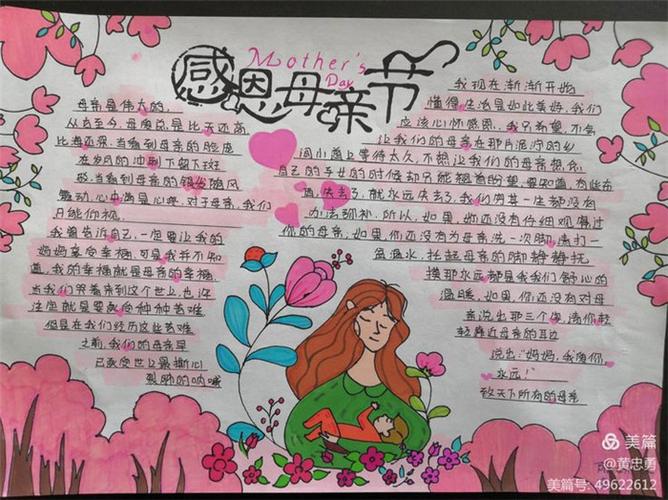 Mother's
Day
感恩母亲节
母亲是伟大的，
从古至今，母爱总是比天还高，
比海还深，当看到母亲的脸庞
在岁月的冲刷下留下斑
斑，当看到母亲的银发随风
飘动，心中满是心疼，对于母亲，我们
只能仰视，
我曾告诉自己，一定要让我的
妈妈享受幸福，可是我并不知
道，我的幸福就是母亲的幸福，
当我们哭着来到这个世上，也许
注定就是要受种种苦难
但是在我们经历这些苦难
之前，我们的母亲早
已承受世上最撕心
裂肺的呐喊
我现在渐渐开始
懂得生活是如此美好，我们
应该心怀感恩，我只希望，不会
让我们的母亲在那片泥泞的乡
间小道上等待太久，不想让我们的母亲想念
自己的子女的时候却只能翘首盼望，要知道，有些东
西，失去了，就永远失去了，我们用其一生都没有
办法弥补，所以，如果，你还没有仔细观看过
你的母亲，如果，你还没有为母亲洗一次脚，请打一
盆温水，托起母亲的脚静静抚
摸那永远都是我们舒心的
温暖，如果，你还没有对母
亲说出那三个字，请你轻
轻靠近母亲的耳边
说出："妈妈，我爱你，
永远！"
致天下所有的母亲
美篇
@黄忠勇
美篇号：49622612